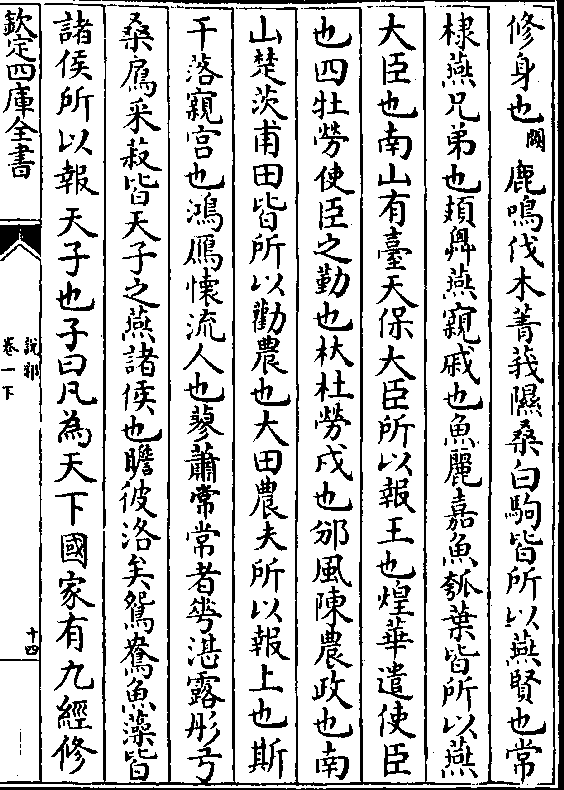 修身也闕鹿鳴伐木菁莪隰桑白駒皆所以燕賢也常
棣燕兄弟也頍弁燕寴戚也魚麗嘉魚瓠葉皆所以燕
大臣也南山有臺天保大臣所以報王也煌華遣使臣
也四牡勞使臣之勤也杕杜勞戍也邠風陳農政也南
山楚茨甫田皆所以勸農也大田農夫所以報上也斯
干落寴宮也鴻鴈懷流人也蓼蕭常常者華湛露彤弓
桑扈采菽皆天子之燕諸侯也瞻彼洛矣鴛鴦魚藻皆
諸侯所以報天子也子曰凡為天下國家有九經修
欽定四庫全書
說郛
卷一下
十四